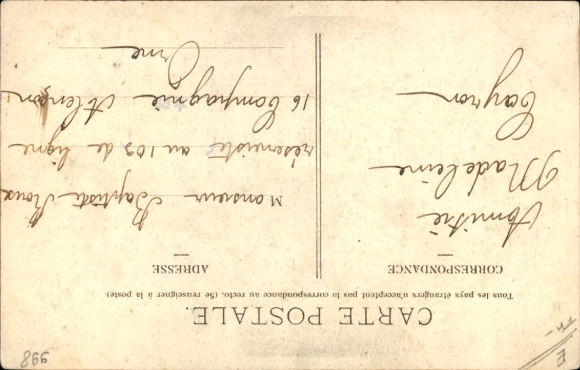 CARTE POSTALE.
Tous les pays étrangers n'acceptent pas la correspondance au recto. (Se renseigner à la poste).
CORRESPONDANCE
Amitié
Madeleine
Cayron
ADRESSE
Monsieur Baptiste Roux
réserviste au 103 de ligne
16 Compagnie Alençon
Orne
998
E